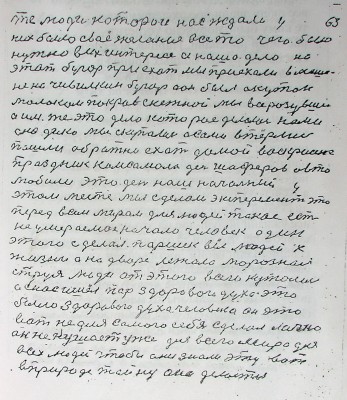 те люди которои нас ждали у 63
них было свае желания все то чего было
нужно в их интересе а нашо дело на
этат бугор приехат мы приехали в
не на чивилкин бугор а он был окутан
молоком покрав снежной мы все розувшие
а им же это дело которое делали нами
сно дело мы скатали сами втёрли
пошли обратно ехат домой воскрисние
праздник камсамола ден шаферов авто
мобили это ден наш началний у
этом месте мы сделали эксперемент это
перед всем миром для людей такое ест
не умераемое начало человек один
этого сделал паршек все людей к
жизни а на дворе лежало морозная
струя люди от этого всего кутолис
а внас ишёл пар здорового духа это
было здоровага духа человека он это
вот не для самого себя сделал лично
он не кушает уже для всего мира для
всех людей чтобы они знали эту вот
в природе тайну она делается